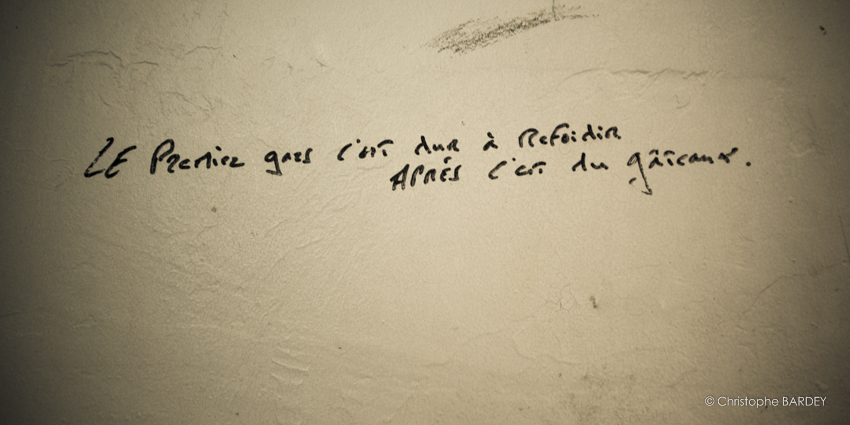 LE Premier gars c'est dur à Refoidir
APRÉS c'est du gâteaux.
© Christophe BARDEY